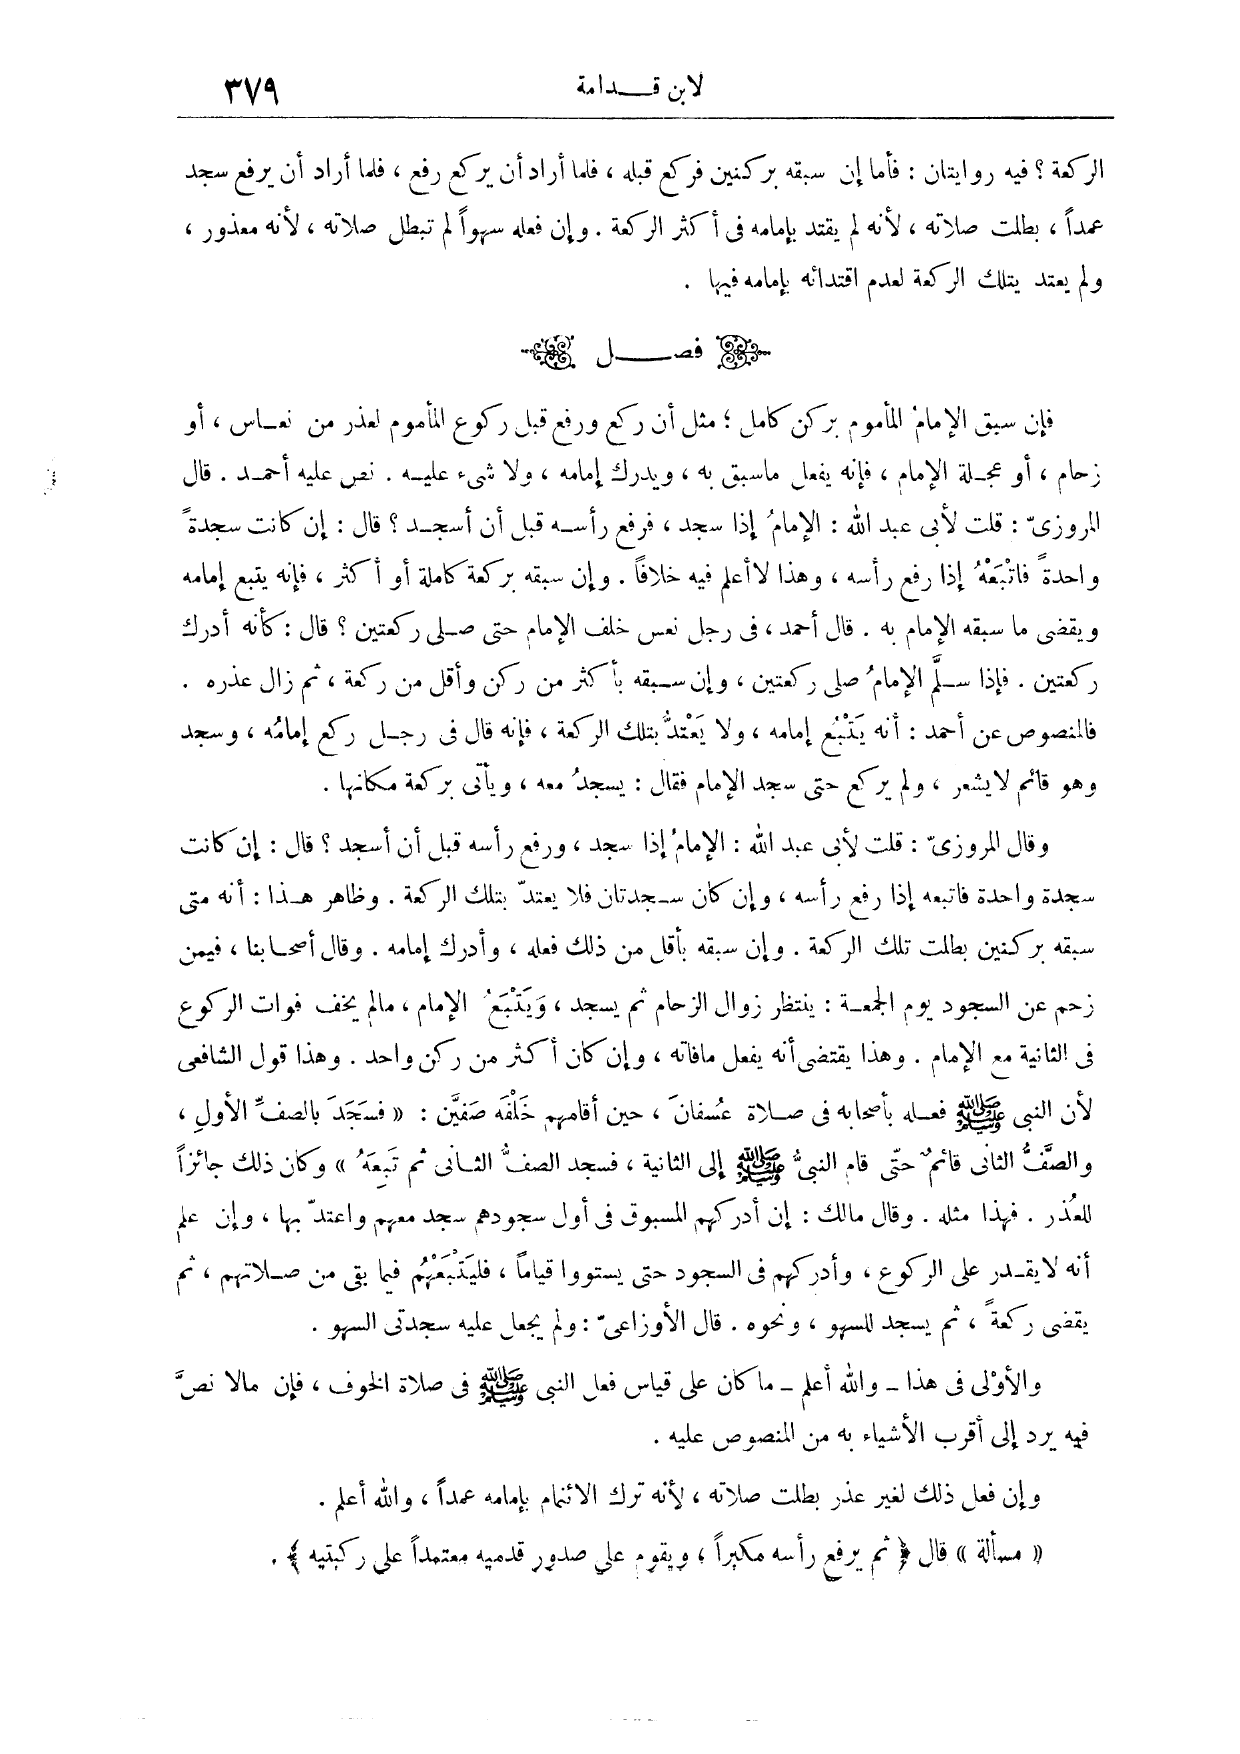 لابن قـــدامة ٣٧٩
الركعة ؟ فيه روايتان : فأما إن سبقه بركنين فركع قبله ، فلما أراد أن يركع رفع ، فلما أراد أن يرفع سجد
عمداً ، بطلت صلاته ، لأنه لم يقتد بإمامه فى أكثر الركعة . وإن فعله سهواً لم تبطل صلاته ، لأنه معذور ،
ولم يعتد بتلك الركعة لعدم اقتدائه بإمامه فيها .
فصـــل
فإن سبق الإمامُ المأموم بركن كامل ؛ مثل أن ركع ورفع قبل ركوع المأموم لعذر من نعـاس ، أو
زحام ، أو عجـلة الإمام ، فإنه يفعل ماسبق به ، ويدرك إمامه ، ولا شىء عليـه . نص عليه أحمـد . قال
المروزىّ : قلت لأبى عبد الله : الإمامُ إذا سجد ، فرفع رأسـه قبل أن أسجـد ؟ قال : إن كانت سجدةً
واحدةً فاتْبَعْهُ إذا رفع رأسه ، وهذا لاأعلم فيه خلافاً . وإن سبقه بركعة كاملة أو أكثر ، فإنه يتبع إمامه
ويقضى ما سبقه الإمام به . قال أحمد ، فى رجل نعس خلف الإمام حتى صـلى ركعتين ؟ قال : كأنه أدرك
ركعتين . فإذا سـلَّم الإمامُ صلى ركعتين ، وإن سـبقه بأكثر من ركن وأقل من ركعة ، ثم زال عذره .
فالمنصوص عن أحمد : أنه يَتْبَع إمامه ، ولا يَعْتدُّ بتلك الركعة ، فإنه قال فى رجـل ركع إمامُه ، وسجد
وهو قائم لايشعر ، ولم يركع حتى سجد الإمام فقال : يسجدُ معه ، ويأتى بركعة مكانها .
وقال المروزىّ : قلت لأبى عبد الله : الإمامُ إذا سجد ، ورفع رأسه قبل أن أسجد ؟ قال : إن كانت
سجدة واحدة فاتبعه إذا رفع رأسه ، وإن كان سـجدتان فلا يعتدّ بتلك الركعة . وظاهر هـذا : أنه متى
سبقه بركنين بطلت تلك الركعة . وإن سبقه بأقل من ذلك فعله ، وأدرك إمامه . وقال أصحـابنا ، فيمن
زحم عن السجود يوم الجمعـة : ينتظر زوال الزحام ثم يسجد ، وَيَتْبَعُ الإمام ، مالم يخف فوات الركوع
فى الثانية مع الإمام . وهذا يقتضى أنه يفعل مافاته ، وإن كان أكثر من ركن واحد . وهذا قول الشافعى
لأن النبى ﷺ فعـله بأصحابه فى صـلاة عُسفانَ ، حين أقامهم خَلْفَه صَفيَّن : « فسَجَدَ بالصفِّ الأولِ ،
والصَّفُّ الثانى قائمٌ حتّى قام النبىُّ ﷺ إلى الثانية ، فسجد الصفُّ الثـانى ثم تَبِعَهُ » وكان ذلك جائزاً
للعُذر . فهذا مثله . وقال مالك : إن أدركهم المسبوق فى أول سجودهم سجد معهم واعتدّ بها ، وإن علم
أنه لايقـدر على الركوع ، وأدركهم فى السجود حتى يستووا قياماً ، فليَتْبَعْهُم فيما بقى من صـلاتهم ، ثم
يقضى ركعةً ، ثم يسجد للسهو ، ونحوه . قال الأوزاعىّ : ولم يجعل عليه سجدتى السهو .
والأوْلى فى هذا ـ والله أعلم ـ ماكان على قياس فعل النبى ﷺ فى صلاة الخوف ، فإن مالا نصَّ
فيه يرد إلى أقرب الأشياء به من المنصوص عليه .
وإن فعل ذلك لغير عذر بطلت صلاته ، لأنه ترك الائتمام بإمامه عمداً ، والله أعلم .
« مسألة » قال ﴿ ثم يرفع رأسه مكبراً ؛ ويقوم على صدور قدميه معتمداً على ركبتيه ﴾ .